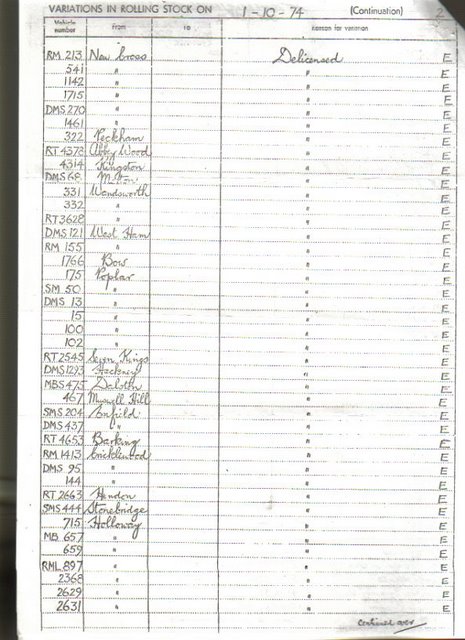 VARIATIONS IN ROLLING STOCK ON 1-10-74 (Continuation) 2
Vehicle number From To Reason for variation
RM 213 New Cross Delicensed E
541 " " E
1142 " " E
1715 " " E
DMS 270 " " E
1461 " " E
322 Peckham " E
RT 4378 Abbey Wood " E
4314 Kingston " E
DMS 68 Merton " E
331 Wandsworth " E
332 " " E
RT 3628 " " E
DMS 121 West Ham " E
RM 155 " " E
1766 Bow " E
175 Poplar " E
SM 50 " " E
DMS 13 " " E
15 " " E
100 " " E
102 " " E
RT 2545 Seven Kings " E
DMS 1293 Hackney " E
MBS 475 Dalston " E
467 Muswell Hill " E
SMS 204 Enfield " E
DMS 437 " " E
RT 4653 Barking " E
RM 1413 Cricklewood " E
DMS 95 " " E
144 " " E
RT 2663 Hendon " E
SMS 444 Stonebridge " E
715 Holloway " E
MB 657 " " E
659 " " E
RML 897 " " E
2368 " " E
2629 " " E
2631 " " E
Continued over